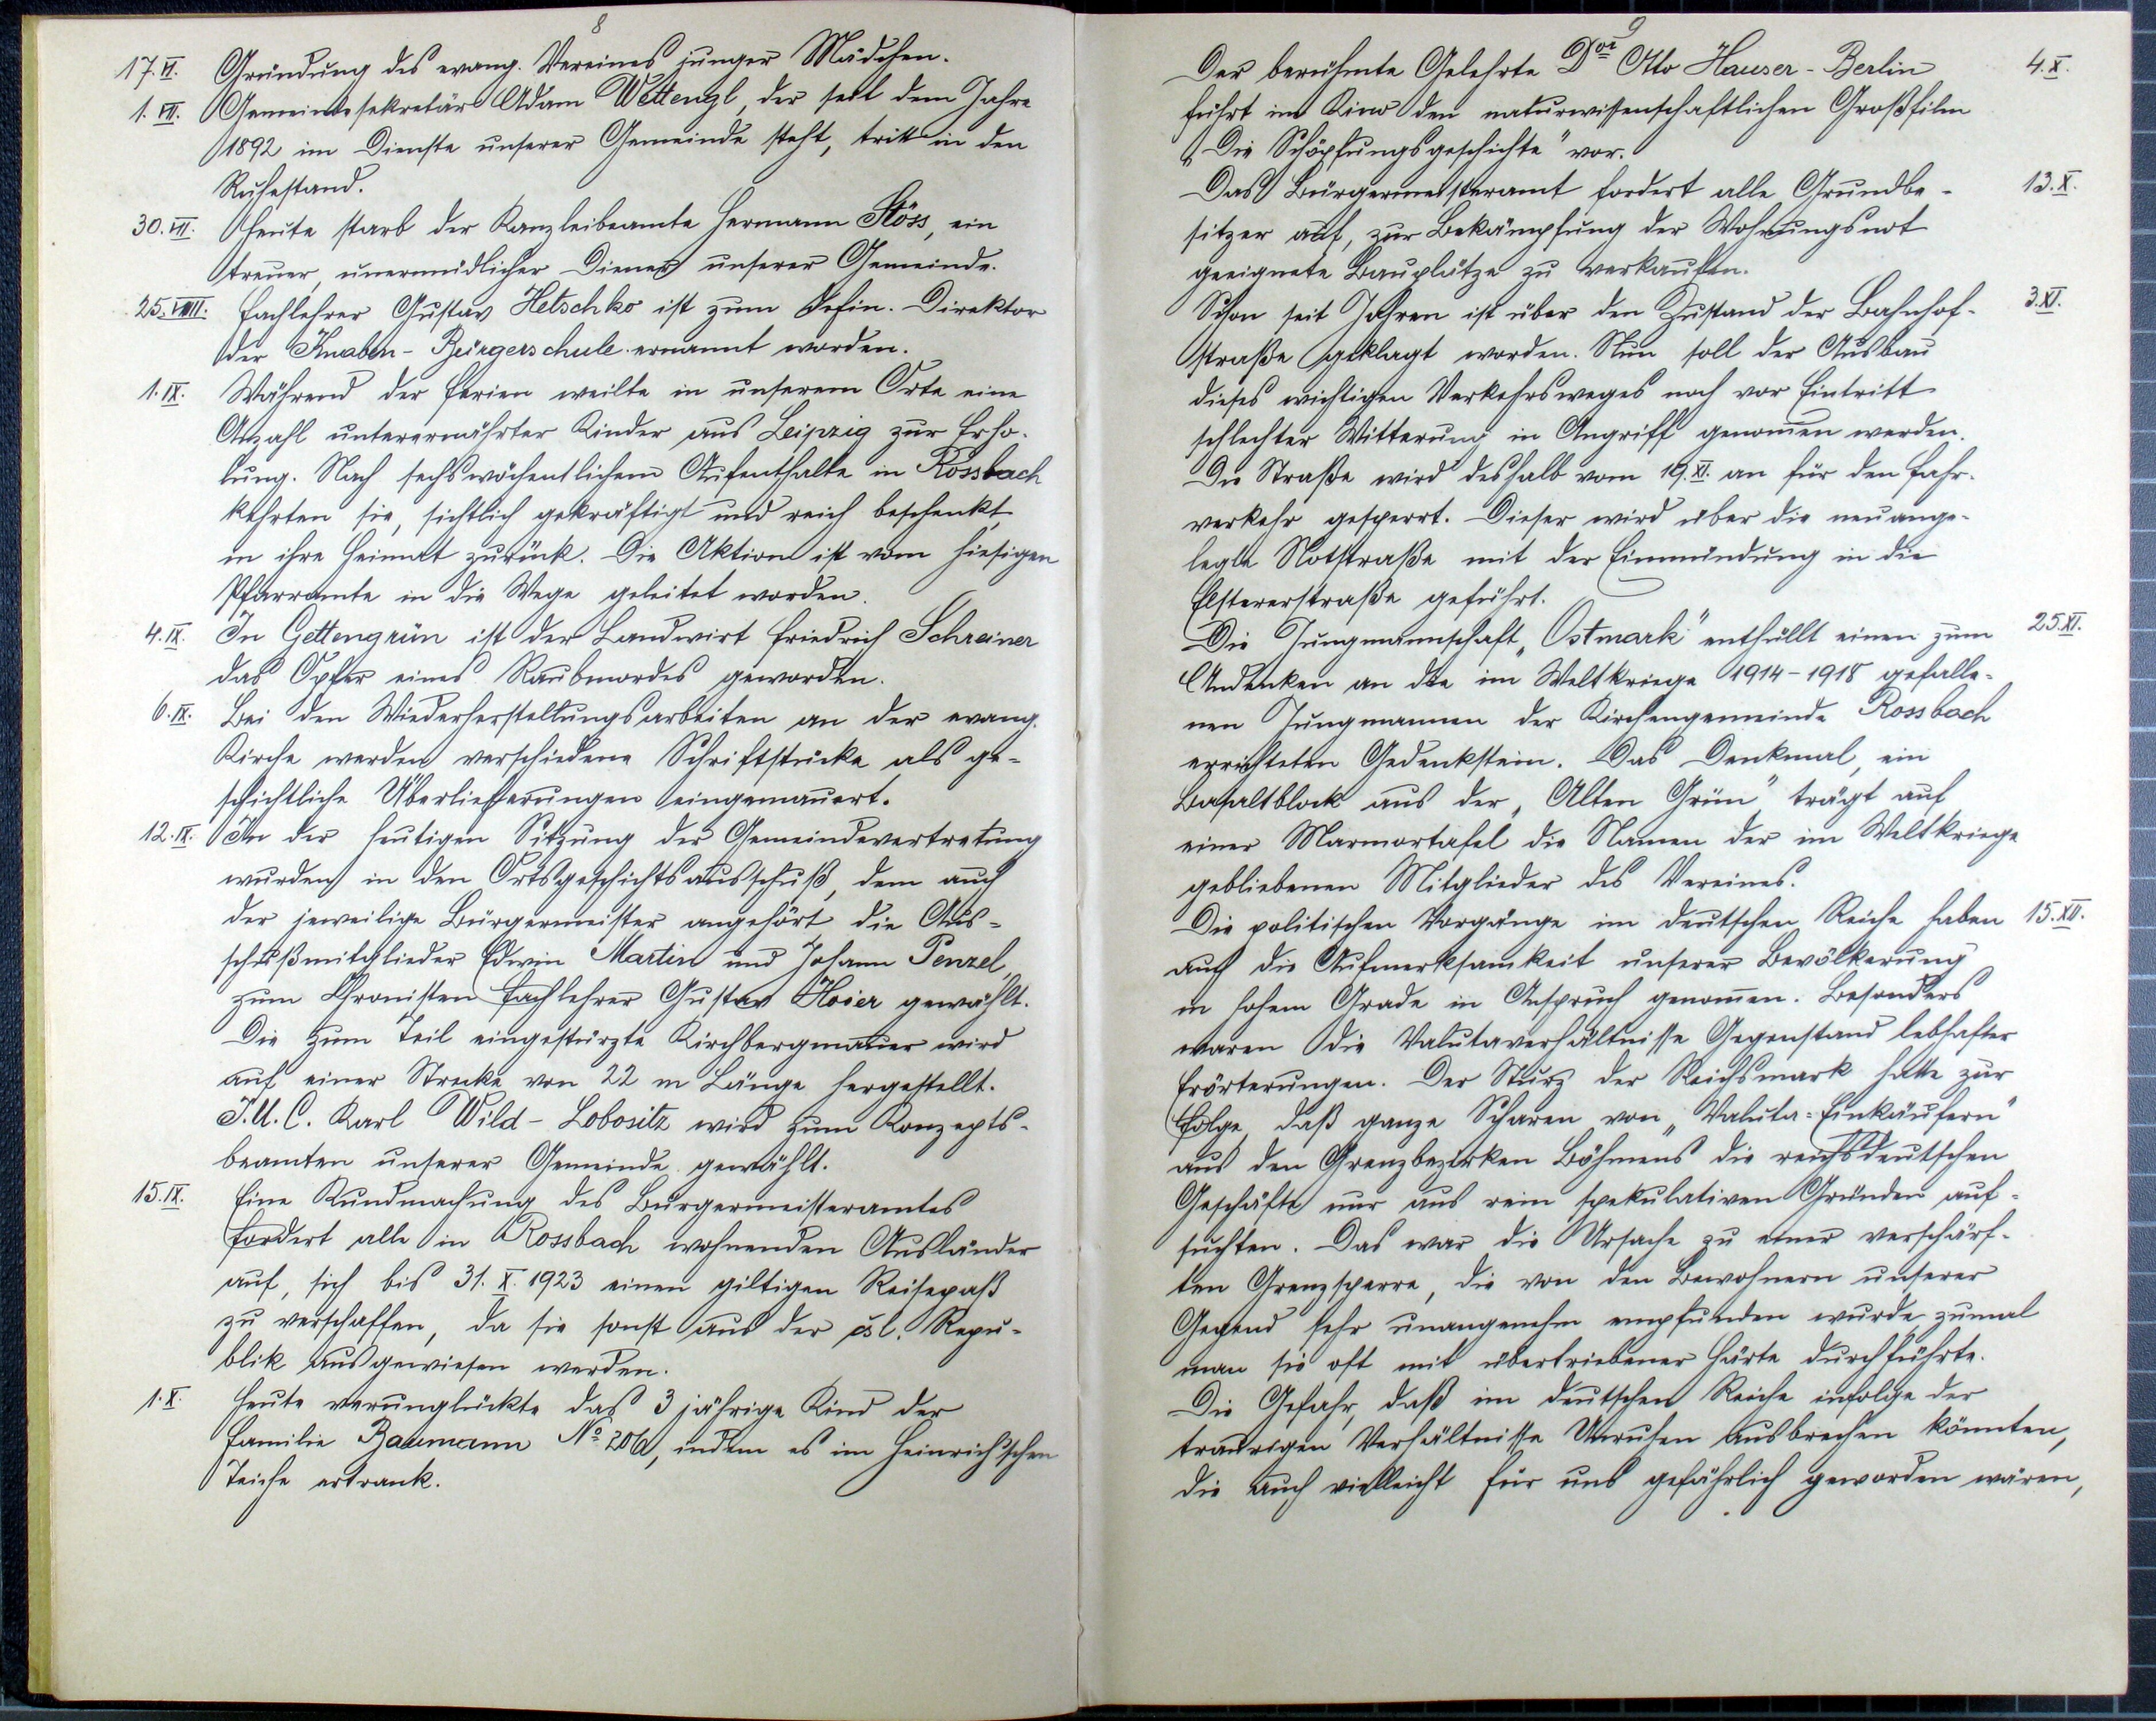 8
17.VI. Gründung des evang. Vereines junger Mädchen.
1.VII. Gemeindesekretär Adam Wettengl, der seit dem Jahre
1892 im Dienste unserer Gemeinde steht, tritt in den
Ruhestand.
30.VII. Heute starb der Kanzleibeamte Hermann Stöss, ein
treuer, unermüdlicher Diener unserer Gemeinde.
25.VIII. Fachlehrer Gustav Hetschko ist zum defin. Direktor
der Knaben-Bürgerschule ernannt worden.
1.IX. Während der Ferien weilte in unserem Orte eine
Anzahl unterernährter Kinder aus Leipzig zur Erho-
lung. Nach sechswöchentlichem Aufenthalte in Rossbach
kehrten sie, sichtlich gekräftigt und reich beschenkt,
in ihre Heimat zurück. Die Aktion ist vom hiesigen
Pfarramte in die Wege geleitet worden.
4.IX. In Gettengrün ist der Landwirt Friedrich Schreiner
das Opfer eines Raubmordes geworden.
6.IX. Bei den Wiederherstellungsarbeiten an der evang.
Kirche werden verschiedene Schriftstücke als ge-
schichtliche Überlieferungen eingemauert.
12.IX. In der heutigen Sitzung der Gemeindevertretung
wurden in den Ortsgeschichtsausschuß, dem auch
der jeweilige Bürgermeister angehört die Aus-
schußmitglieder Edwin Martin und Johann Penzel,
zum Chronisten Fachlehrer Gustav Hoier gewählt.
Die zum Teil eingestürzte Kirchbergmauer wird
auf einer Strecke von 22 m Länge hergestellt.
J.U.C. Karl Wild-Lobositz wird zum Konzepts-
beamten unserer Gemeinde gewählt.
15.IX. Eine Kundmachung des Bürgermeisteramtes
fordert alle in Rossbach wohnenden Ausländer
auf, sich bis 31.X.1923 einen giltigen Reisepaß
zu verschaffen, da sie sonst aus der čsl. Repu-
blik ausgewiesen werden.
1.X. Heute verunglückte das 3 jährige Kind der
Familie Baumann No 206, indem es im Heinrich'schen
Teiche ertrank.
9
Der berühmte Gelehrte Dor Otto Hauser-Berlin 4.X.
führt im Kino den naturwissenschaftlichen Großfilm
„Die Schöpfungsgeschichte" vor.
Das Bürgermeisteramt fordert alle Grundbe- 13.X.
sitzer auf, zur Bekämpfung der Wohnungsnot
geeignete Bauplätze zu verkaufen.
Schon seit Jahren ist über den Zustand der Bahnhof- 3.XI.
straße geklagt worden. Nun soll der Ausbau
dieses wichtigen Verkehrsweges noch vor Eintritt
schlechter Witterung in Angriff genommen werden.
Die Straße wird deshalb vom 19.XI. an für den Fahr-
verkehr gesperrt. Dieser wird über die neuange-
legte Notstraße mit der Einmündung in die
Elstererstraße geführt.
Die Jungmannschaft „Ostmark" enthüllt einen zum 25.XI.
Andenken an die im Weltkriege 1914-1918 gefalle-
nen Jungmannen der Kirchengemeinde Rossbach
errichteten Gedenkstein. Das Denkmal, ein
Basaltblock aus der „Alten Grün" trägt auf
einer Marmortafel die Namen der im Weltkriege
gebliebenen Mitglieder des Vereines.
Die politischen Vorgänge im deutschen Reiche haben 15.XII.
auch die Aufmerksamkeit unserer Bevölkerung
in hohem Grade in Anspruch genommen. Besonders
waren die Valutaverhältnisse Gegenstand lebhafter
Erörterungen. Der Sturz der Reichsmark hatte zur
Folge, daß ganze Scharen von „Valuta-Einkäufern"
aus den Grenzbezirken Böhmens die reichsdeutschen
Geschäfte nur aus rein spekulativen Gründen auf-
suchten. Das war die Ursache zu einer verschärf-
ten Grenzsperre, die von den Bewohnern unserer
Gegend sehr unangenehm empfunden wurde, zumal
man sie oft mit übertriebener Härte durchführte.
Die Gefahr, daß im deutschen Reiche infolge der
traurigen Verhältnisse Unruhen ausbrechen könnten,
die auch vielleicht für uns gefährlich geworden wären,